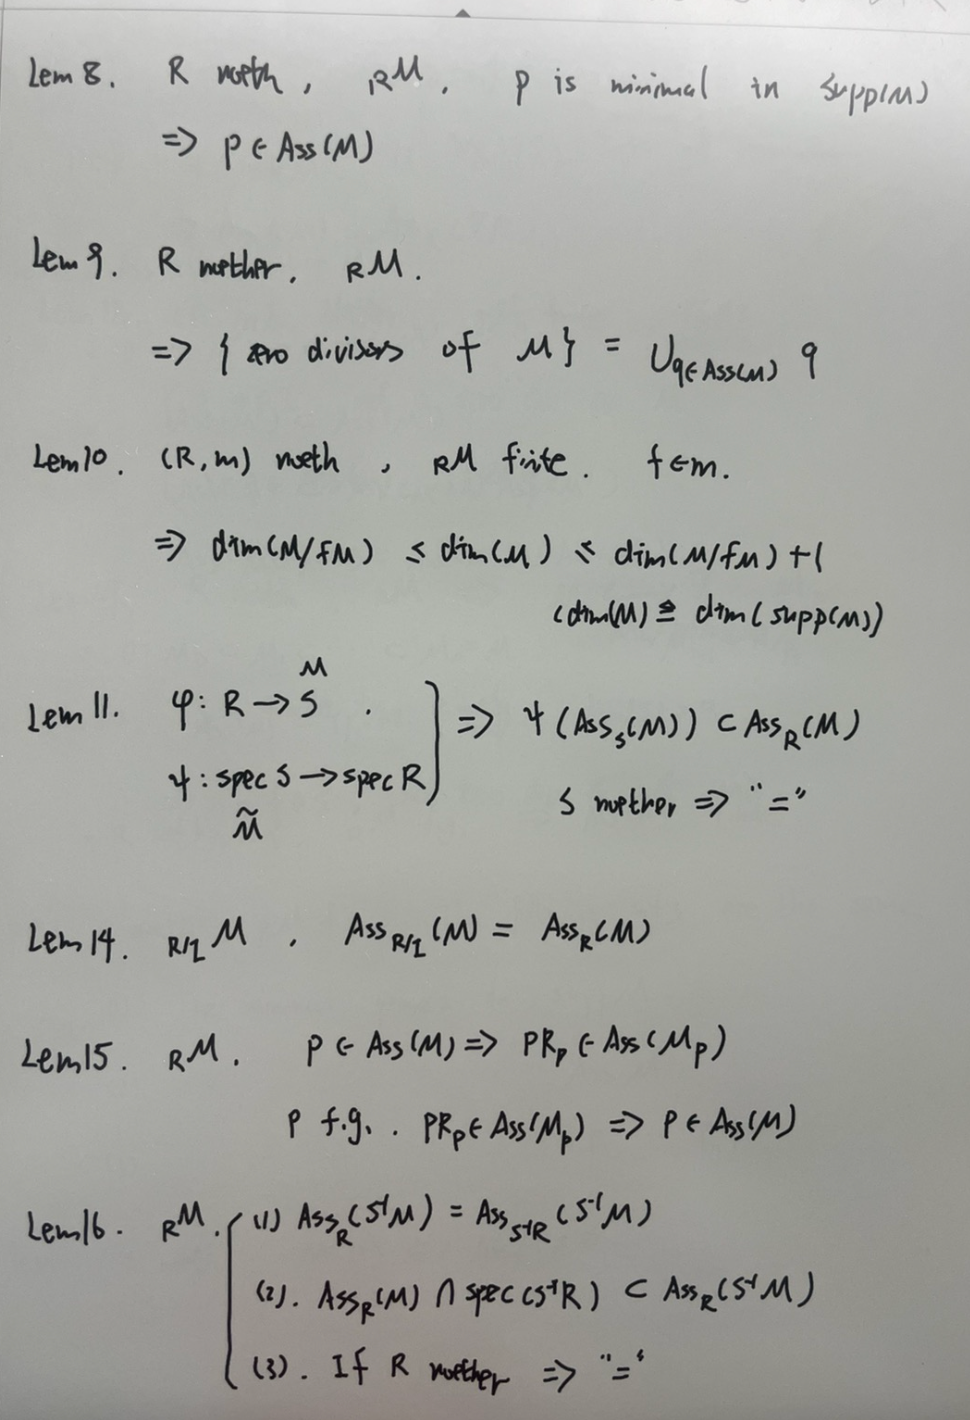 Lem 8. R noeth, RM. p is minimal in supp(M)
=> p ∈ Ass(M)
Lem 9. R noether. RM.
=> { zero divisors of M } = ∪q∈Ass(M) q
Lem 10. (R, m) noeth, RM finite. f ∈ m.
=> dim(M/fM) ≤ dim(M) ≤ dim(M/fM) + 1
(dim(M) ≙ dim(supp(M))
M
Lem 11. φ: R → S. => ψ(AssS(M)) ⊂ AssR(M)
ψ: spec S → spec R
S noether => "="
M̃
Lem 14. R/I M. AssR/I(M) = AssR(M)
Lem 15. RM. p ∈ Ass(M) => pRp ∈ Ass(Mp)
p f.g.. pRp ∈ Ass(Mp) => p ∈ Ass(M)
Lem 16. RM. (1) AssR(S⁻¹M) = AssS⁻¹R(S⁻¹M)
(2). AssR(M) ∩ spec(S⁻¹R) ⊂ AssR(S⁻¹M)
(3). If R noether => "="